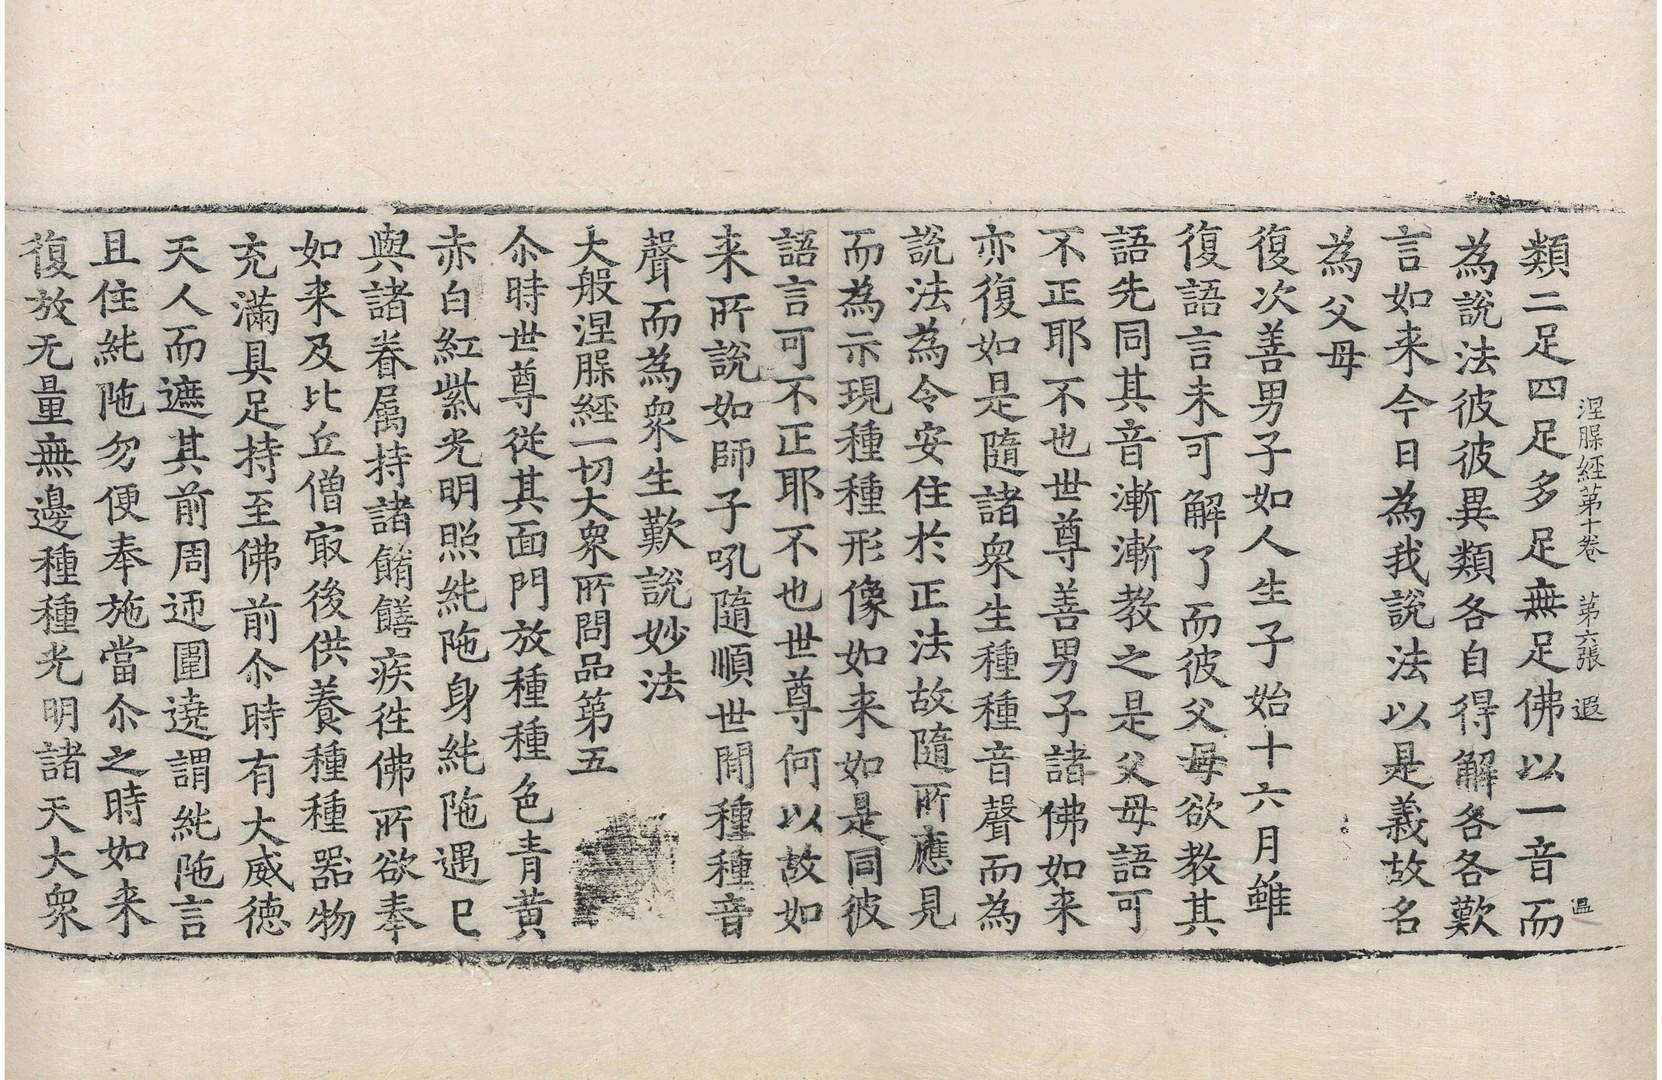 涅脲經第十卷 第六張 遐 昷
類二足四足多足無足佛以一音而
為說法彼彼異類各自得解各各歎
言如来今日為我說法以是義故名
為父母
復次善男子如人生子始十六月雖
復語言未可解了而彼父母欲教其
語先同其音漸漸教之是父母語可
不正耶不也世尊善男子諸佛如来
亦復如是隨諸衆生種種音聲而為
說法為令安住於正法故隨所應見
而為示現種種形像如来如是同彼
語言可不正耶不也世尊何以故如
来所說如師子吼隨順世間種種音
聲而為衆生歎說妙法
大般涅脲經一切大衆所問品第五
尒時世尊從其面門放種種色青黃
赤白紅紫光明照純陁身純陁遇已
與諸眷属持諸餚饍疾徃佛所欲奉
如来及比丘僧冣後供養種種器物
充滿具足持至佛前尒時有大威德
天人而遮其前周迊圍遶謂純陁言
且住純陁勿便奉施當尒之時如来
復放无量無邊種種光明諸天大衆